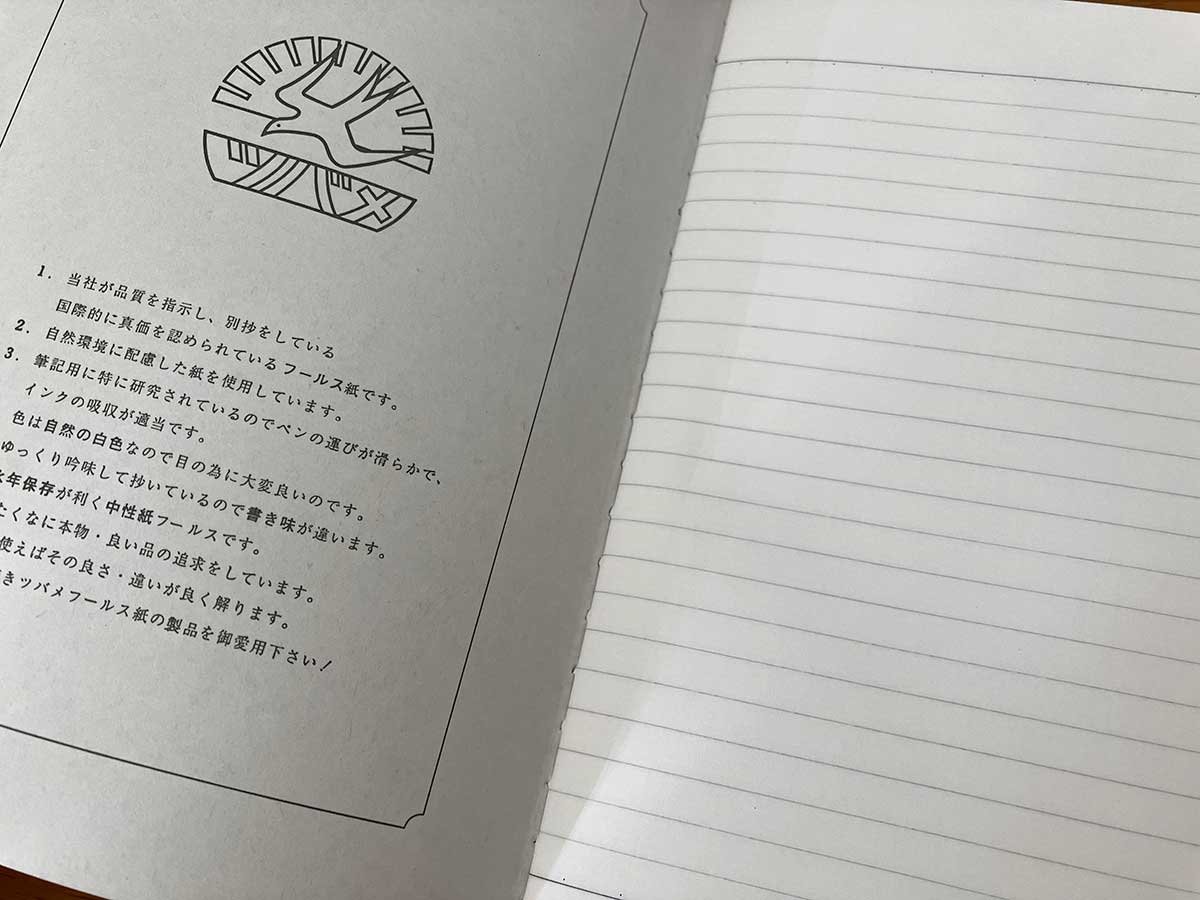 ツバメ
1. 当社が品質を指示し、別抄をしている
国際的に真価を認められているフールス紙です。
2. 自然環境に配慮した紙を使用しています。
3. 筆記用に特に研究されているのでペンの運びが滑らかで、
インクの吸収が適当です。
色は自然の白色なので目の為に大変良いのです。
ゆっくり吟味して抄いているので書き味が違います。
年保存が利く中性紙フールスです。
たくなに本物・良い品の追求をしています。
使えばその良さ・違いが良く解ります。
きツバメフールス紙の製品を御愛用下さい！